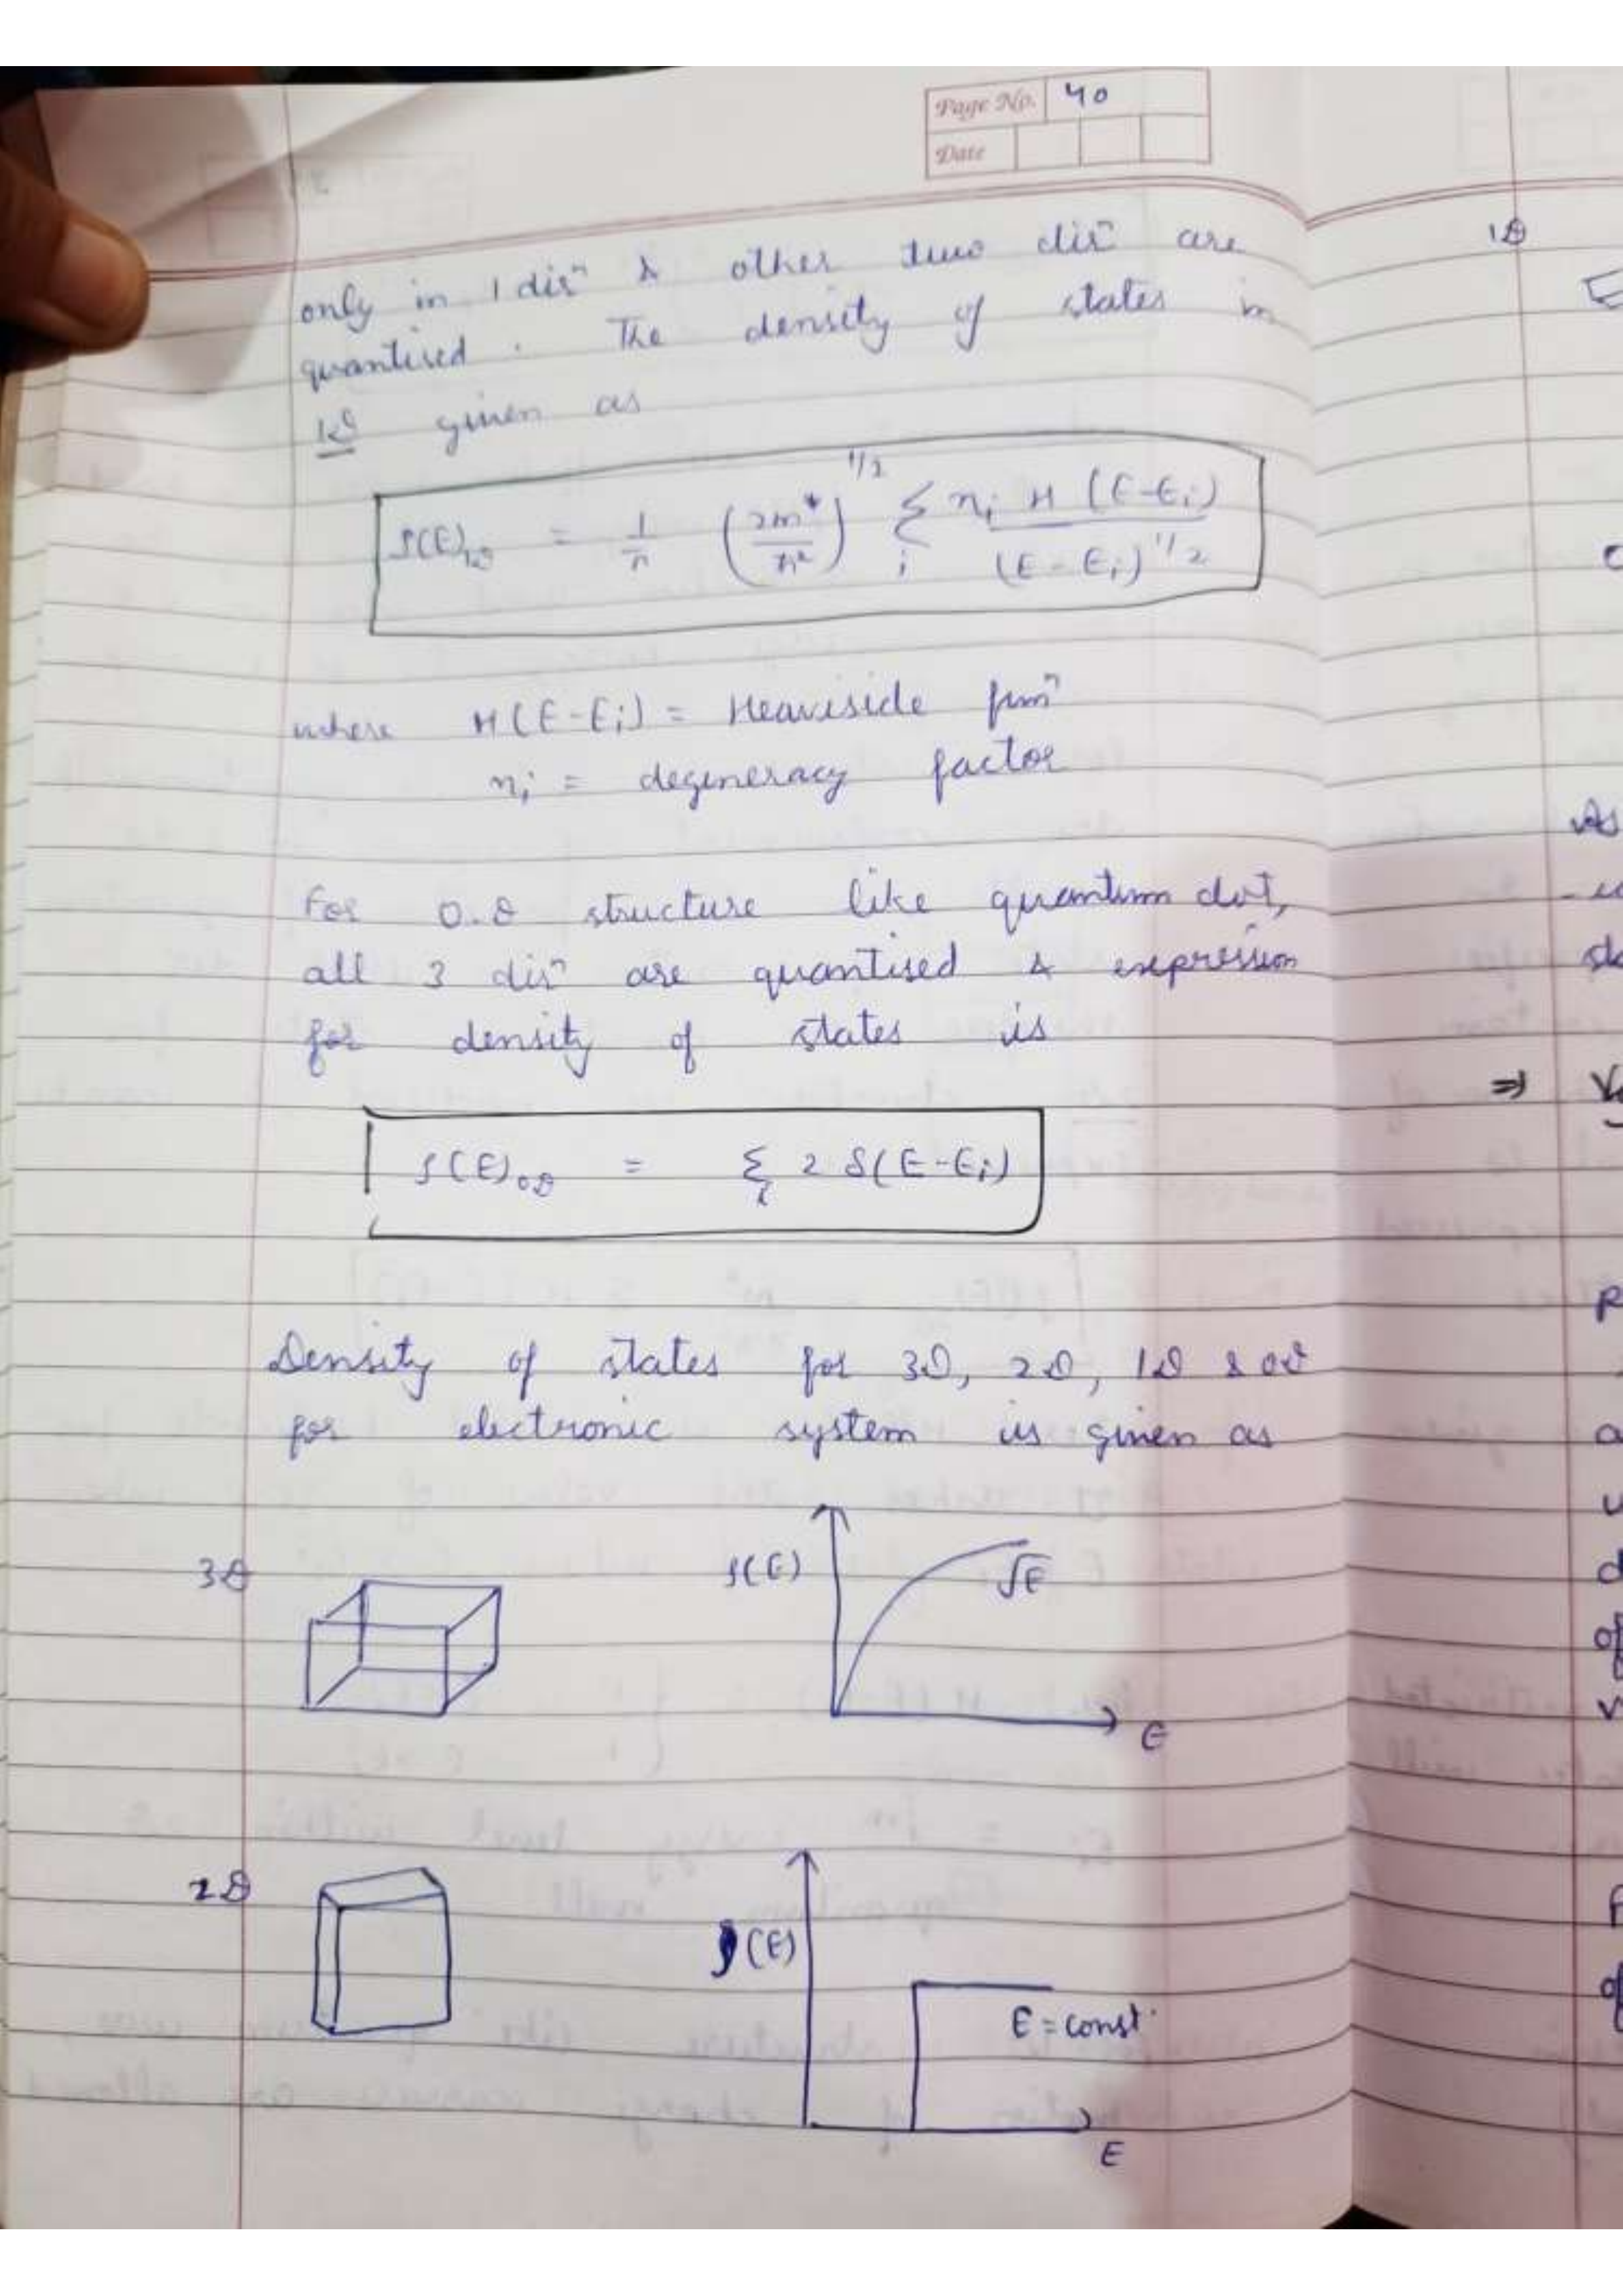 Page No. 40
Date
only in 1 dirⁿ & other two dirⁿ are
quantised. The density of states in
1D given as
ρ(E)₁D = 1/π (2m*/ħ²)^1/2 Σ_i n_i H (E-E_i) / (E-E_i)^1/2
where H(E-E_i) = Heaviside funⁿ
n_i = degeneracy factor
For 0.D structure like quantum dot,
all 3 dirⁿ are quantised & expression
for density of states is
ρ(E)₀D = Σ_i 2 δ(E-E_i)
Density of states for 3D, 2D, 1D & 0D
for electronic system is given as
3D
ρ(E)
√E
E
2D
ρ(E)
E = const.
E
1D
As
⇒